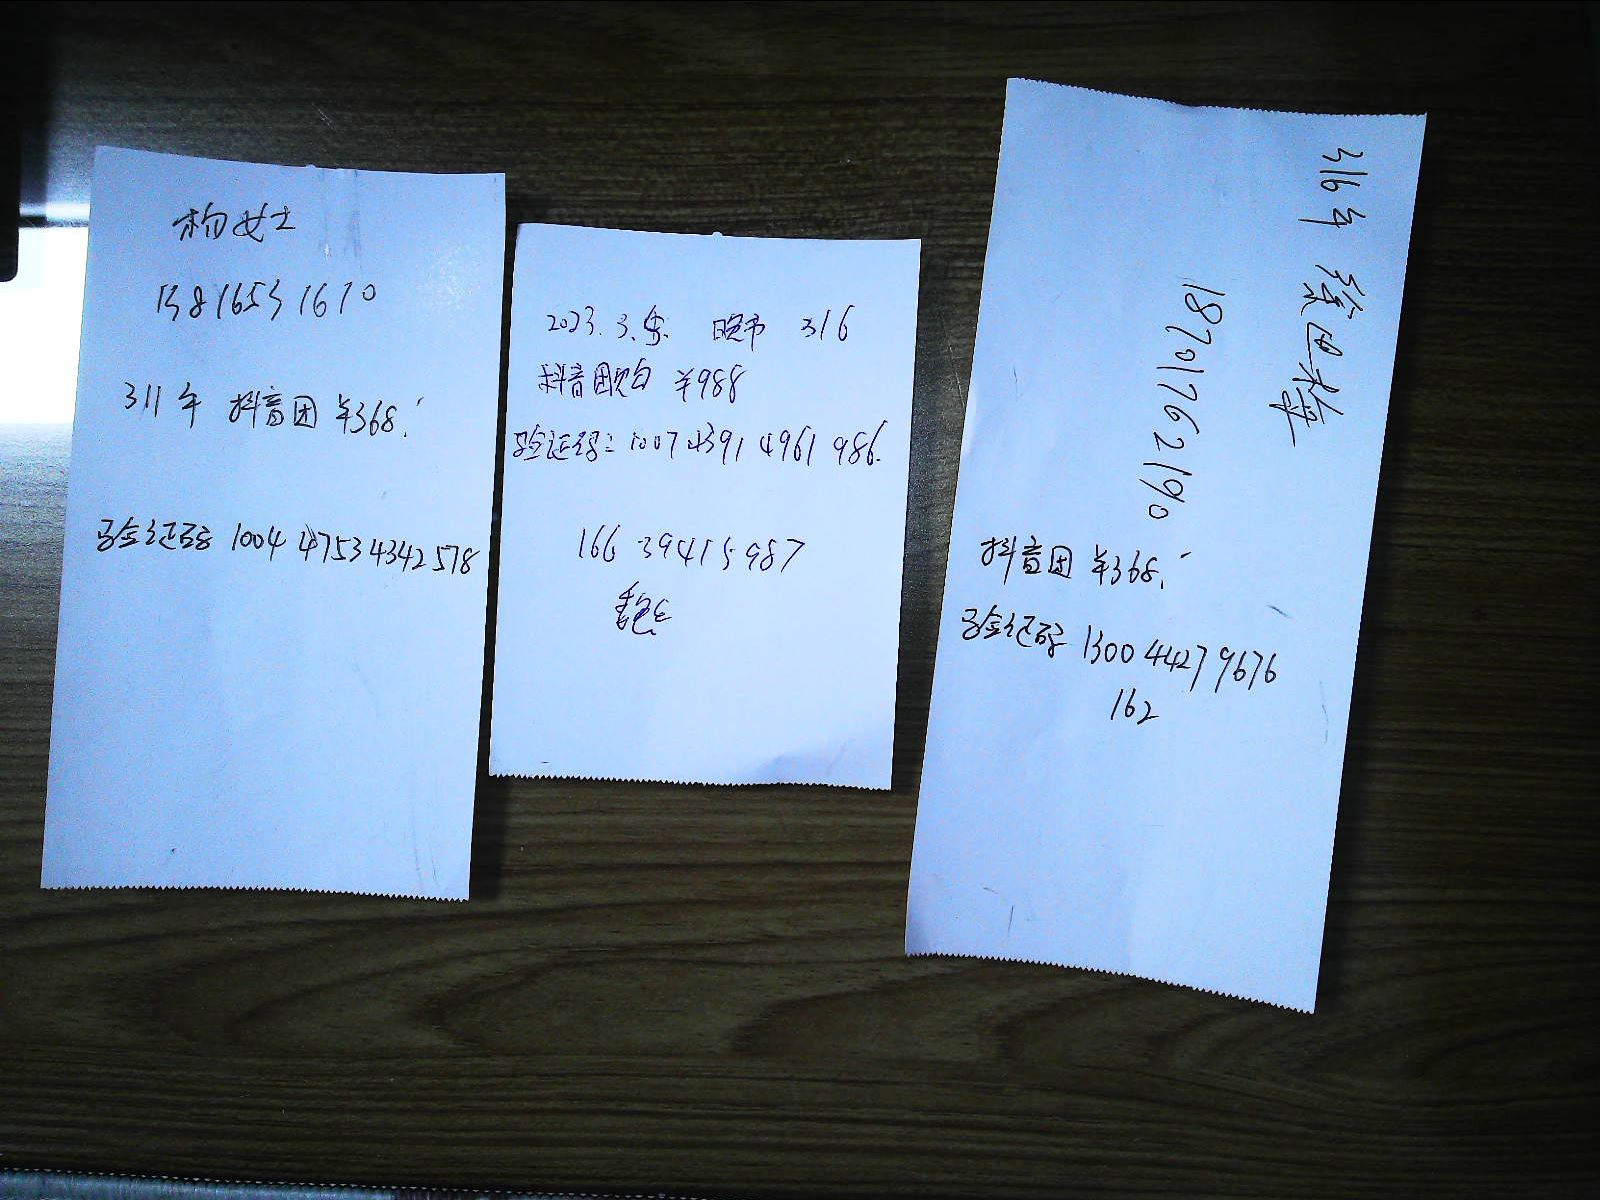 杨女士
13816531670
311午 抖音团 ¥368.
验证码 1004 4753 4342 578
2023.3. 晚市 316
抖音团购 ¥988
验证码: 1007 4391 4961 986.
166 39415987
魏
316午
18701762190
抖音团 ¥368.
验证码 1300 4427 9676
162